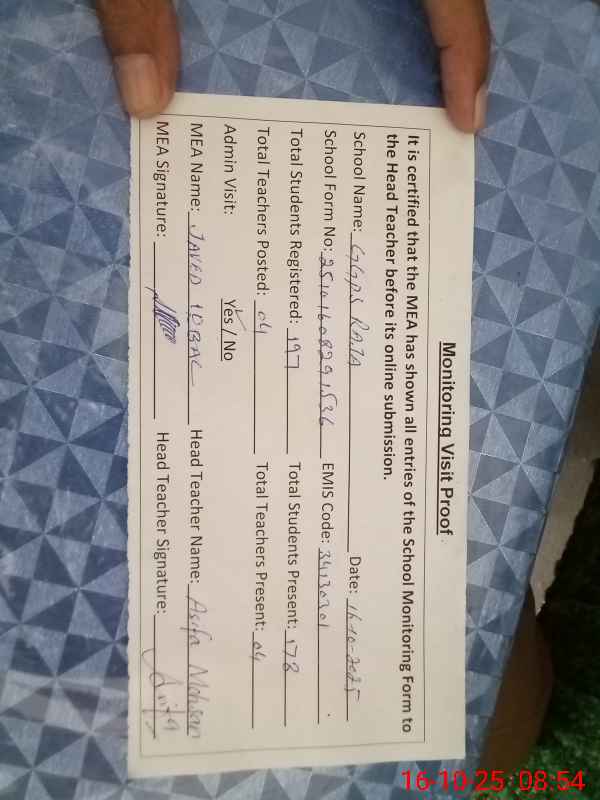 Monitoring Visit Proof
It is certified that the MEA has shown all entries of the School Monitoring Form to
the Head Teacher before its online submission.
School Name: GGPS RAJA Date: 16-10-2025
School Form No: 25101608291536 EMIS Code: 34130301
Total Students Registered: 197 Total Students Present: 178
Total Teachers Posted: 04 Total Teachers Present: 04
Admin Visit: Yes / No
MEA Name: JAVED IQBAL Head Teacher Name: Asifa Mohsan
MEA Signature: Head Teacher Signature: Asifa
16-10-25 08:54